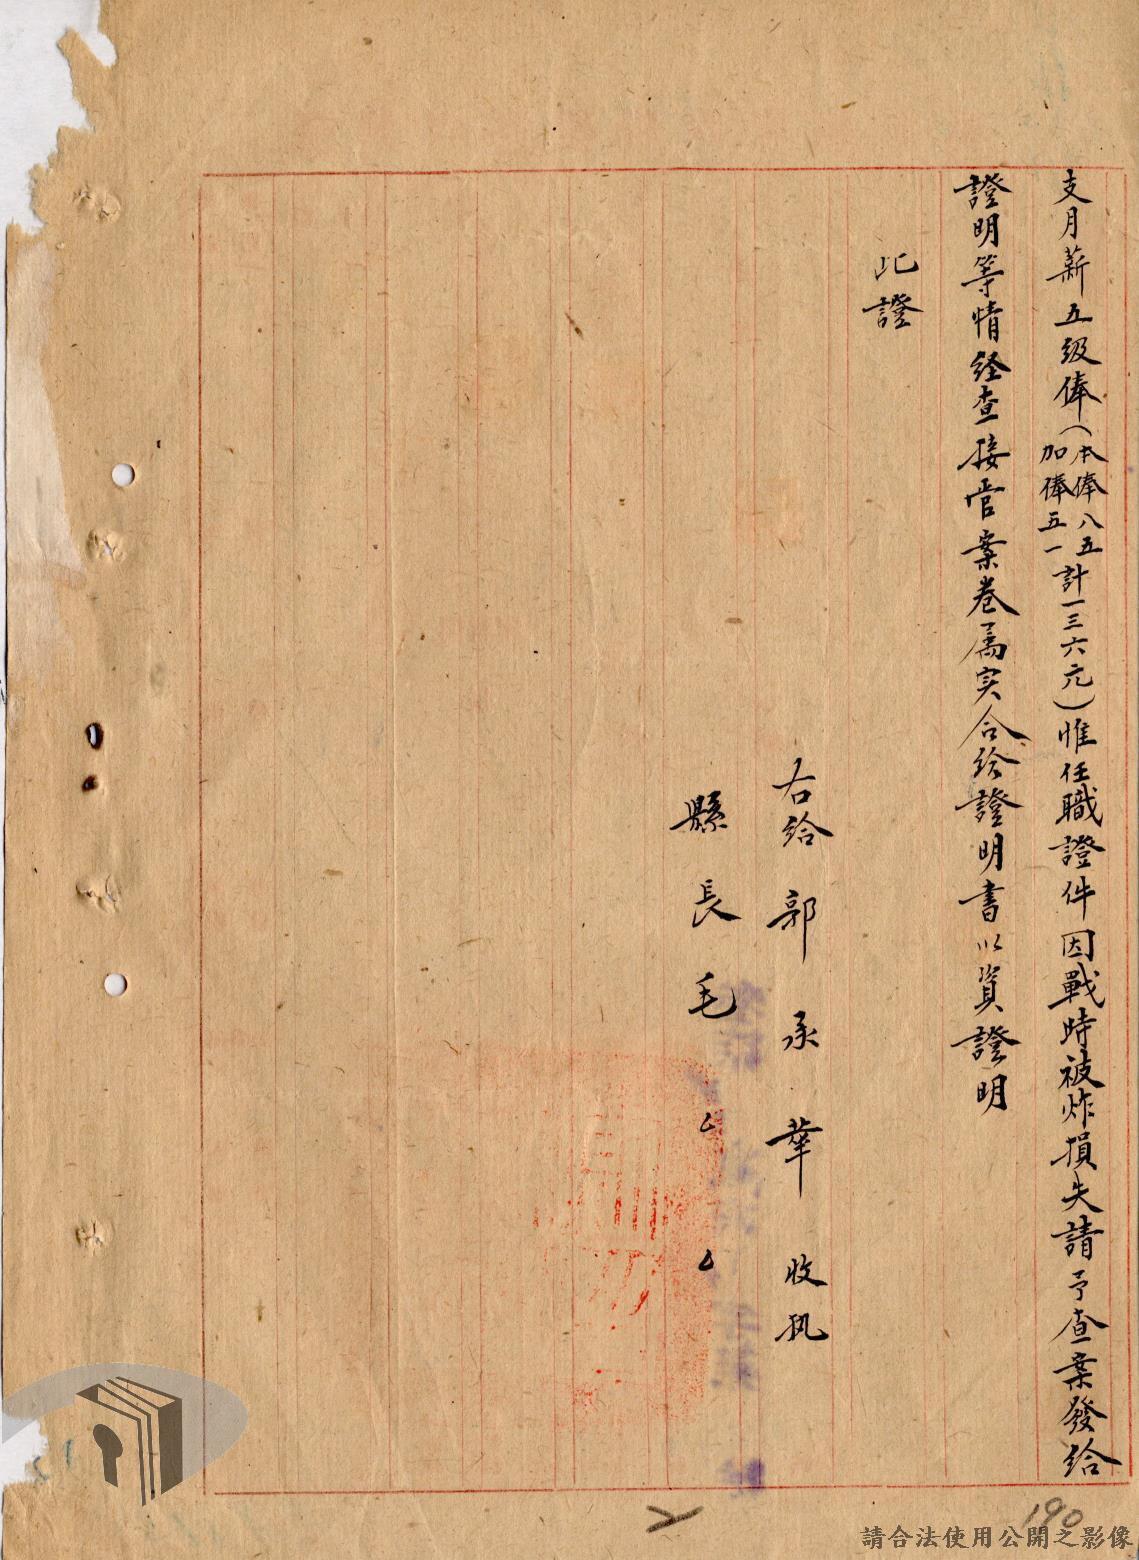 支月薪五級俸(本俸八五加俸五一計一三六元)惟任職證件因戰時被炸損失請予查案發給
證明等情経查接管案卷属实合给證明書以資證明
此證
右给郭承華收执
縣長毛
190
請合法使用公開之影像